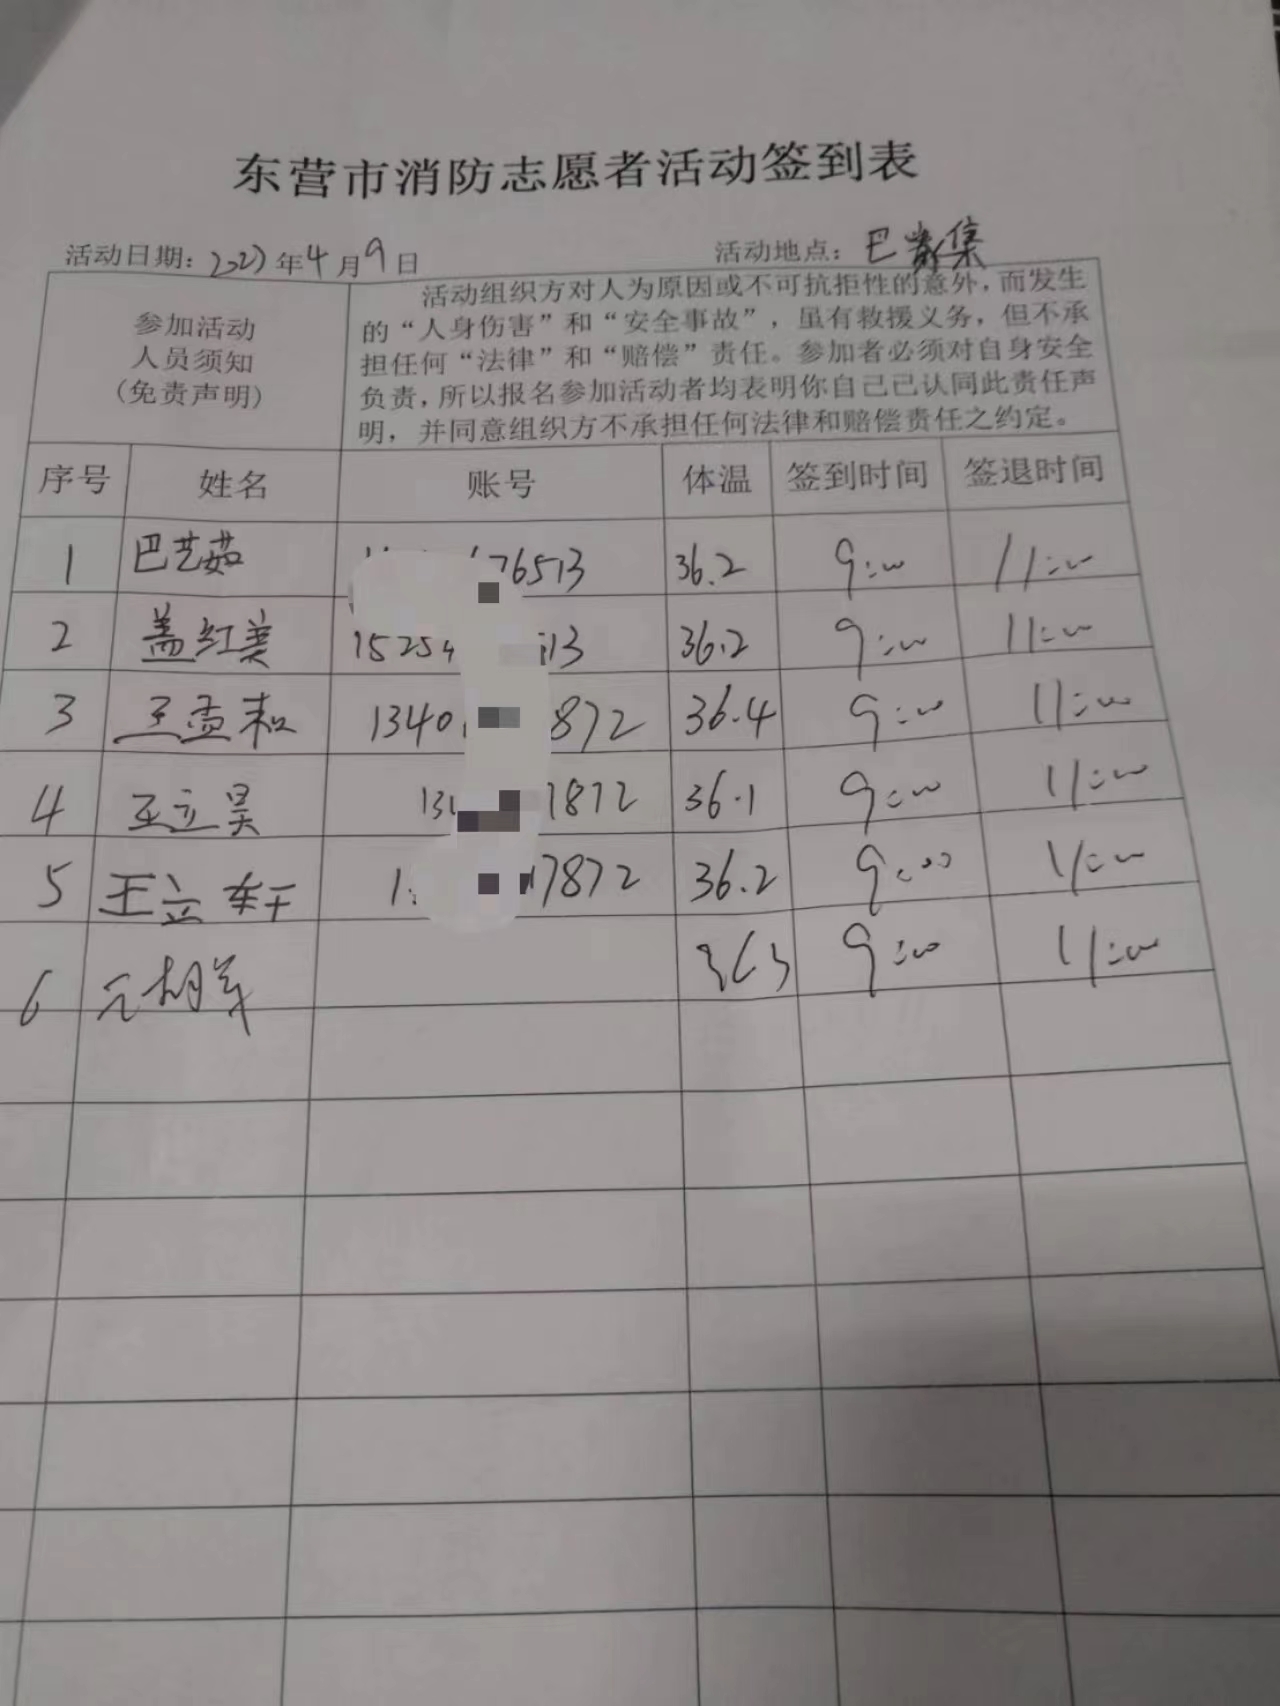 东营市消防志愿者活动签到表
活动日期: 2023年4月9日 活动地点: 巴 集
参加活动
人员须知
(免责声明)
活动组织方对人为原因或不可抗拒性的意外,而发生
的“人身伤害”和“安全事故”,虽有救援义务,但不承
担任何“法律”和“赔偿”责任。参加者必须对自身安全
负责,所以报名参加活动者均表明你自己已认同此责任声
明,并同意组织方不承担任何法律和赔偿责任之约定。
序号 姓名 账号 体温 签到时间 签退时间
1 巴艺茹 76513 36.2 9:00 11:00
2 盖红美 15254 13 36.2 9:00 11:00
3 王孟和 1340 872 36.4 9:00 11:00
4 王立昊 134 7872 36.1 9:00 11:00
5 王立轩 1 17872 36.2 9:00 11:00
6 363 9:00 11:00